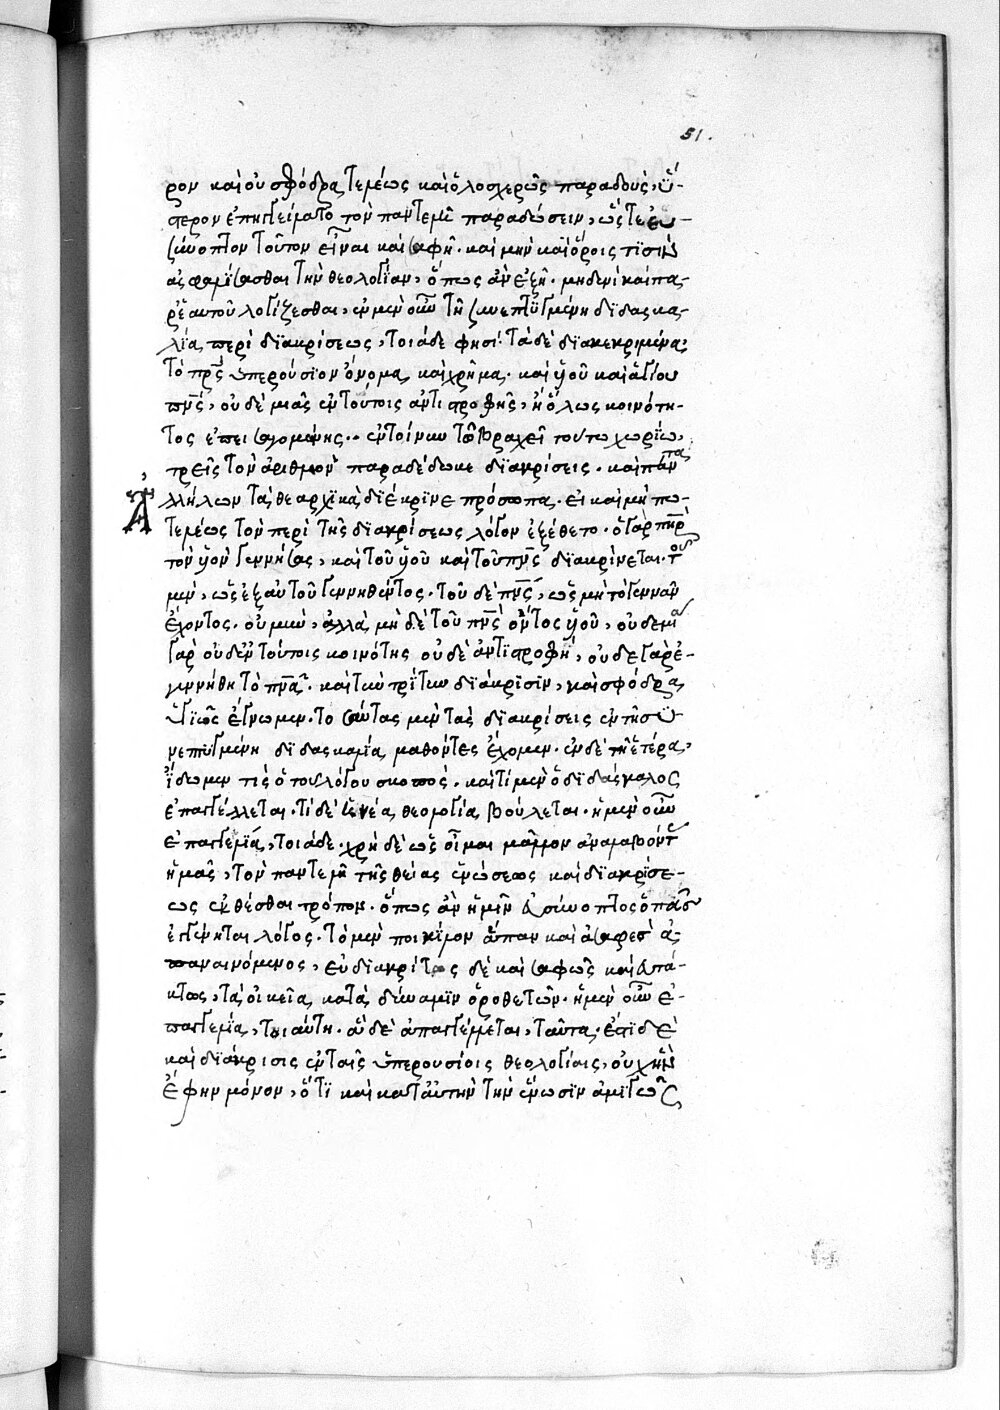 51.
ρον καὶ οὐ σφόδρα τελέως καὶ ὁλοσχερῶς παραδοὺς, ὕ-
στερον ἐπηγγείλατο τὸν παντελῆ παραδώσειν, ὥστε εὐ
σύνοπτον τοῦτον εἶναι καὶ σαφῆ. καὶ μὴν καὶ ὅροις τισὶν
ἀσφαλίσασθαι τὴν θεολογίαν, ὅπως ἂν ἐξῆ. μηδενὶ καὶ πα-
ρ' ἑαυτοῦ λογίζεσθαι, ἐν μὲν οὖν τῆ συνεπτυγμένη διδασκα-
λία περὶ διακρίσεως, τοιάδε φησί· τὰ δὲ διακεκριμένα·
τὸ πρς ὑπερούσιον ὄνομα καὶ χρῆμα. καὶ ὑοῦ καὶ ἁγίου
πνς, οὐδὲ μιᾶς ἐν τούτοις ἀντιστροφῆς, ἢ ὅλως κοινότη-
τος ἐπεισαγομένης.. ἐν τοίνυν τῶ βραχεῖ τούτω χωρίω,
τρεῖς τὸν ἀριθμὸν παραδέδωκε διακρίσεις. καὶ παντ
πασ
ἀλλήλων τὰ θεαρχικὰ διέκρινε πρόσωπα. εἰ καὶ μήπω
τελέως τὸν περὶ τῆς διακρίσεως λόγον ἐξέθετο. ὁ γὰρ πηρ
τὸν ὑὸν γεννήσας, καὶ τοῦ ὑοῦ καὶ τοῦ πνς διακρίνεται. τοῦ
μὲν, ὡς ἐξ αὐτοῦ γεννηθέντος. τοῦ δὲ πνς, ὡς μὴ τὸ γεννᾶν
ἔχοντος. οὐ μὴν, ἀλλὰ μὴ δὲ τοῦ πνς ὄντος ὑοῦ, οὐδεμία
γὰρ οὐδ' ἐν τούτοις κοινότης οὐδὲ ἀντιστροφή, οὐδὲ γὰρ ἐ-
γεννήθη τὸ πνα. καὶ τὴν τρίτην διάκρισιν, καὶ σφόδρα
ὑγιῶς ἔγνωμεν. τοσαύτας μὲν τὰς διακρίσεις ἐν τῆ συ-
νεπτυγμένη διδασκαλία μαθόντες ἔχομεν. ἐν δὲ τῆ ἑτέρα,
ἴδωμεν τίς ὁ τοῦ λόγου σκοπὸς. καὶ τί μὲν ὁ διδάσκαλος
ἐπαγγέλλεται. τί δὲ ἡ νέα θεολογία βούλεται. ἡ μὲν οὖν
ἐπαγγελία, τοιάδε. χρὴ δὲ ὡς οἶμαι μᾶλλον ἀναλαβόντ
ἡμᾶς, τὸν παντελῆ τῆς θείας ἑνώσεως καὶ διακρίσε-
ως ἐκθέσθαι τρόπον. ὅπως ἂν ἡμῖν εὐσύνοπτος ὁ πᾶς
ἐγγένηται λόγος. τὸ μὲν ποικίλον ἅπαν καὶ ἀσαφὲς ἀ-
παναινόμενος, εὐδιακρίτως δὲ καὶ σαφῶς καὶ εὐτά-
κτως, τὰ οἰκεῖα κατὰ δύναμιν ὁροθετῶν. ἡ μὲν οὖν ἐ-
παγγελία, τοιαύτη. ἃ δὲ ἀπαγγέλλεται, ταῦτα. ἔστι δὲ
καὶ διάκρισις ἐν ταῖς ὑπερουσίοις θεολογίαις, οὐχ ἣν
ἔφην μόνον, ὅτι καὶ κατ' αὐτὴν τὴν ἕνωσιν ἀμιγῶς